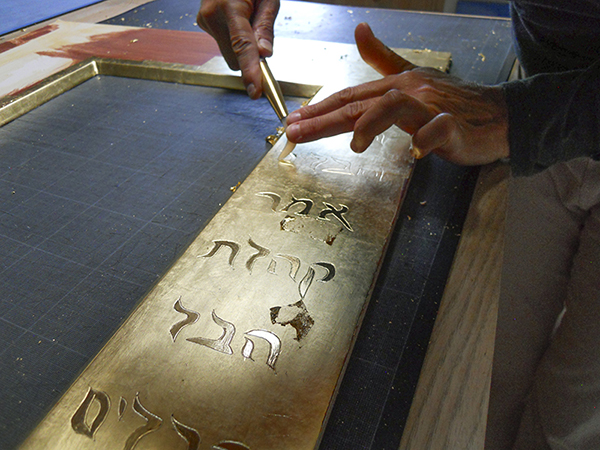 אמר
קהלת
הבל
הבלים